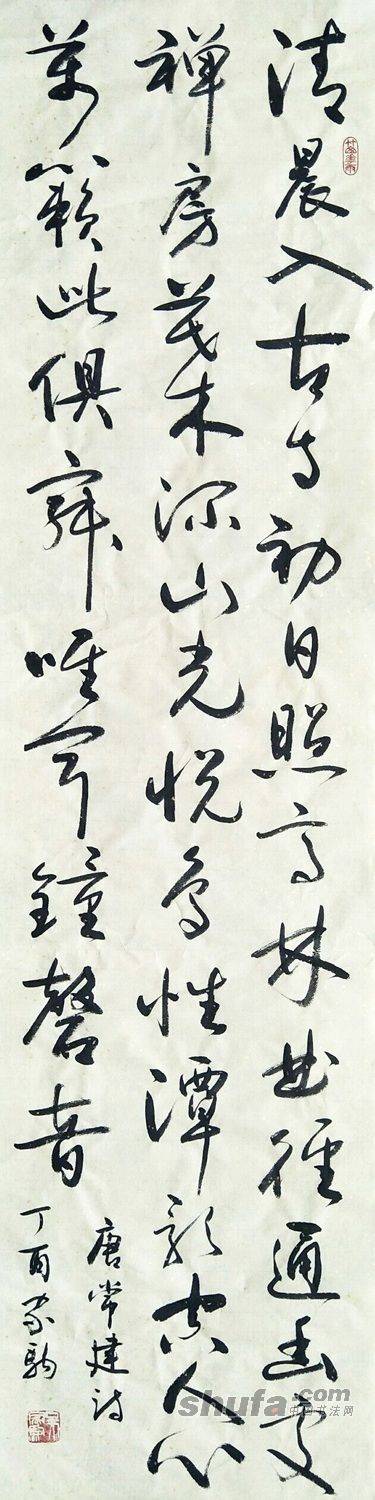 清晨入古寺初日照高林曲徑通幽處
禪房花木深山光悅鳥性潭影空人心
萬籟此俱寂唯聞鐘磬音
唐常建詩
丁酉家駒
shufa.com
中国书法网